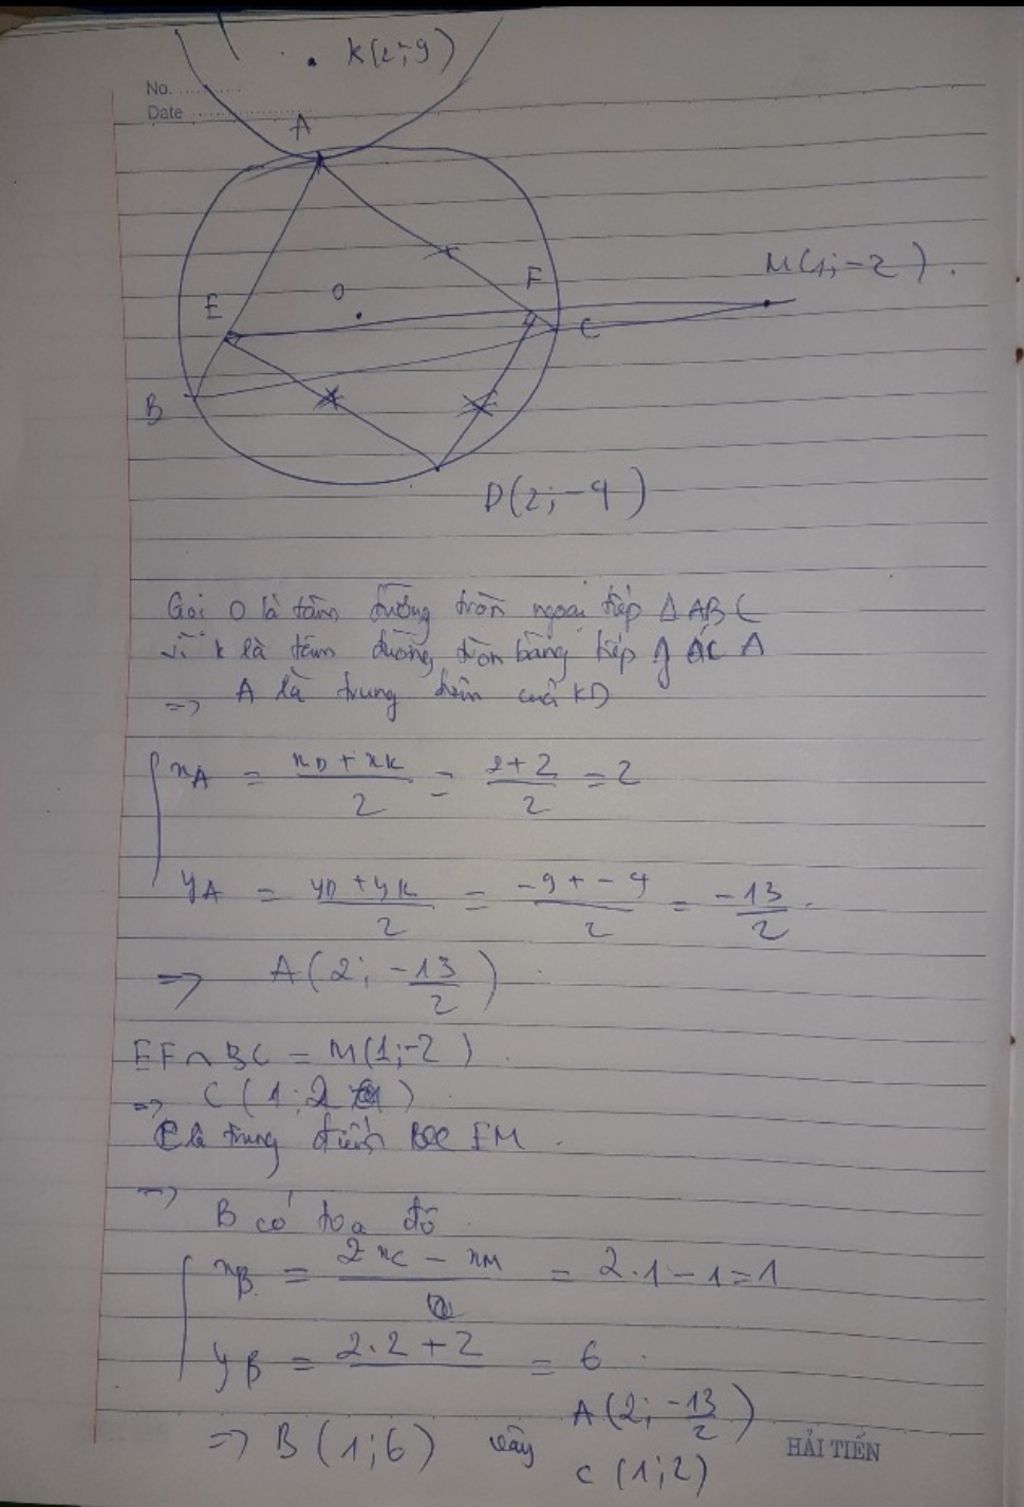 K(2;9)
No.
Date
A
M(1;-2).
F
O
E
C
B
D(2;-4)
Gọi O là tâm đường tròn ngoại tiếp ΔABC
Vì K là tâm đường tròn bàng tiếp A
=> A là trung điểm của KD
x_A = (x_D + x_K)/2 = (2+2)/2 = 2
y_A = (y_D + y_K)/2 = (-9+-4)/2 = -13/2.
=> A(2; -13/2)
EF∩BC = M(1;-2).
=> C(1;2)
C là trung điểm EM.
=> B có tọa độ
x_B = 2x_C - x_M = 2.1-1=1
y_B = 2.2+2 = 6.
A(2; -13/2)
=> B(1;6) vậy
C(1;2)
HẢI TIẾN